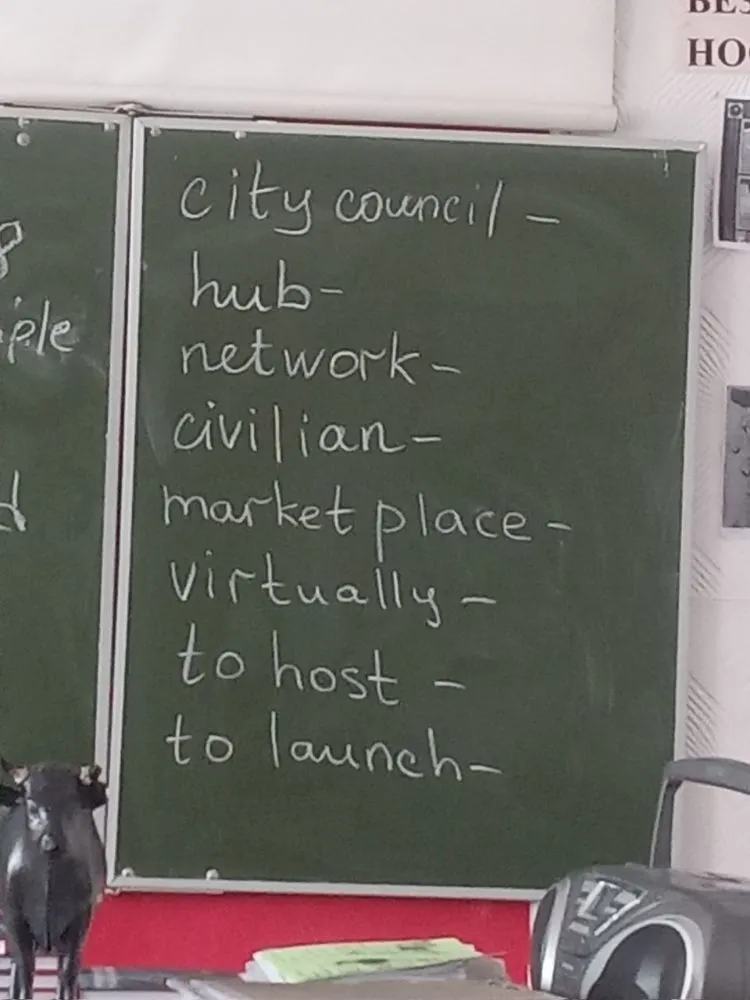 city council -
hub-
network-
civilian-
market place-
virtually-
to host -
to launch-